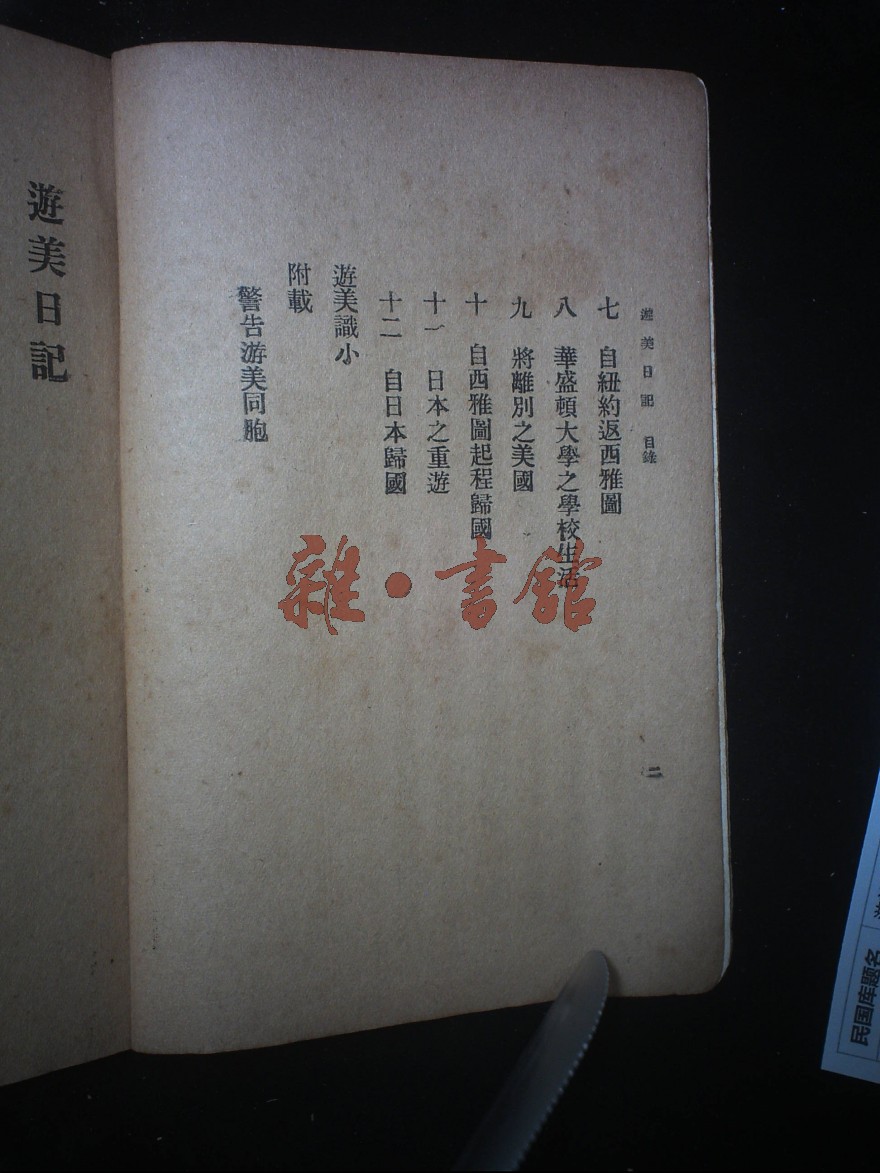 遊美日記 目錄
七 自紐約返西雅圖
八 華盛頓大學之學校生活
九 將離別之美國
十 自西雅圖起程歸國
十一 日本之重遊
十二 自日本歸國
遊美識小
附載
警告游美同胞
二
遊美日記
雜·書館
民国库题名